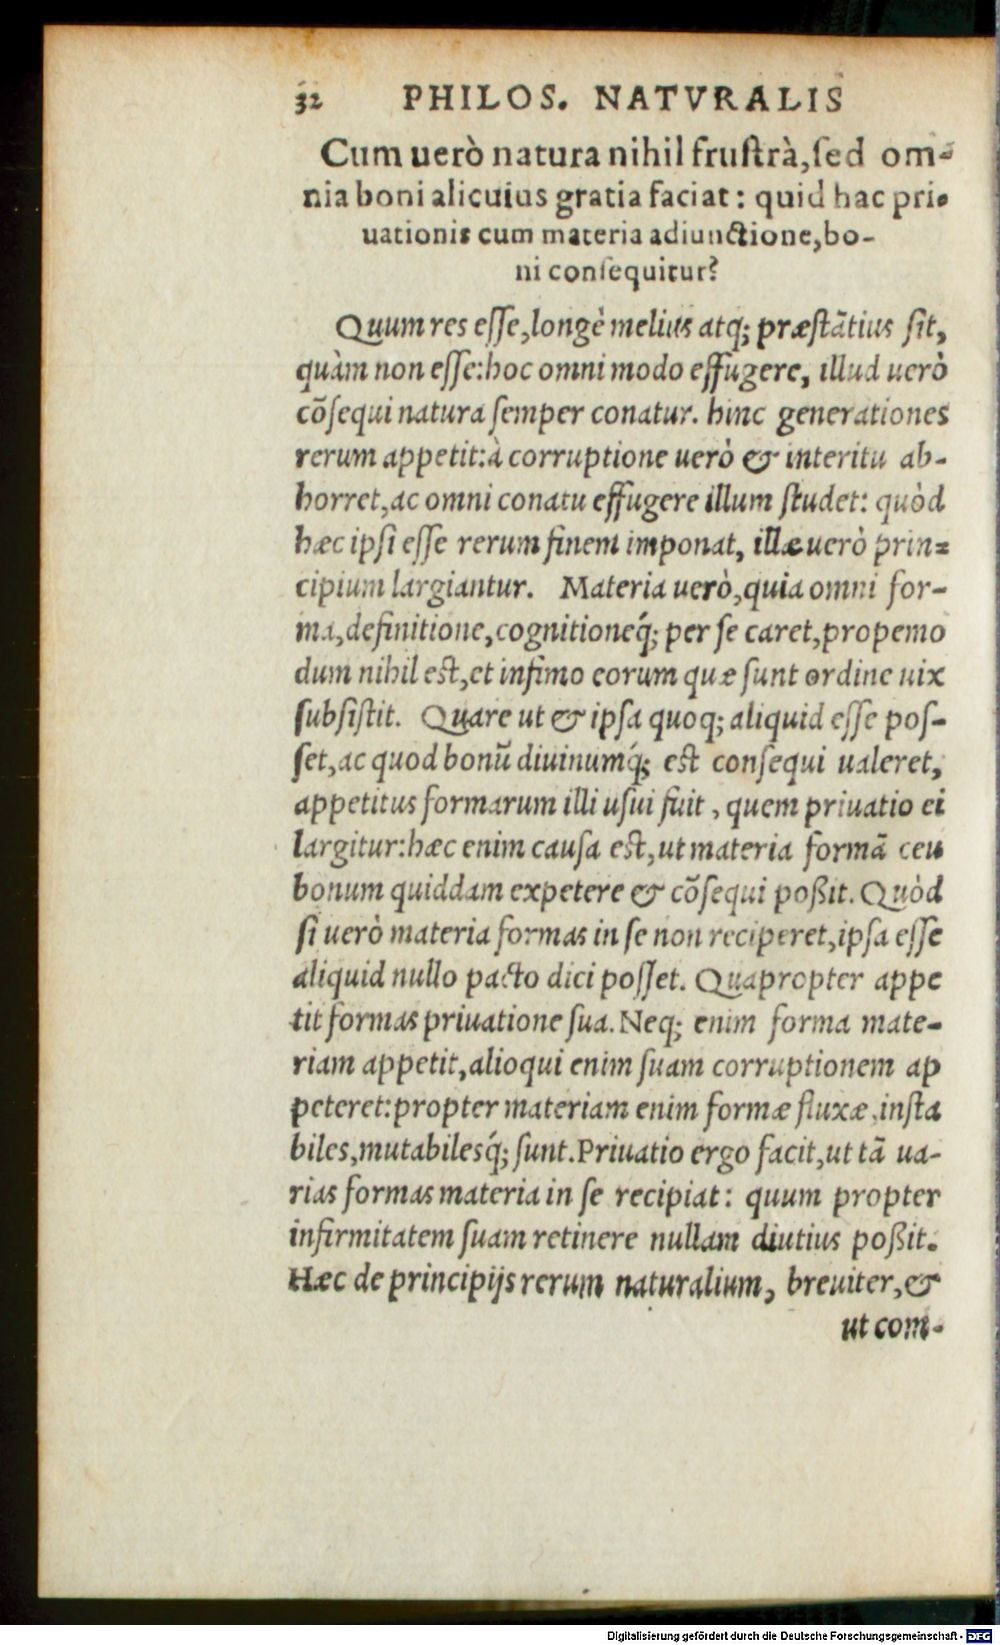 32 PHILOS. NATVRALIS
Cum uerò natura nihil frustrà, sed om-
nia boni alicuius gratia faciat: quid hac pri-
uationis cum materia adiunctione, bo-
ni consequitur?
Quum res esse, longè melius atq; præstãtius sit,
quàm non esse: hoc omni modo effugere, illud uerò
cõsequi natura semper conatur. hinc generationes
rerum appetit: à corruptione uerò & interitu ab-
horret, ac omni conatu effugere illum studet: quòd
hæc ipsi esse rerum finem imponat, illæ uerò prin-
cipium largiantur. Materia uerò, quia omni for-
ma, definitione, cognitioneq́; per se caret, propemo
dum nihil est, et infimo eorum quæ sunt ordine uix
subsistit. Quare ut & ipsa quoq; aliquid esse pos-
set, ac quod bonũ diuinumq́; est consequi ualeret,
appetitus formarum illi usui fuit, quem priuatio ei
largitur: hæc enim causa est, ut materia formã ceu
bonum quiddam expetere & cõsequi poßit. Quòd
si uerò materia formas in se non reciperet, ipsa esse
aliquid nullo pacto dici posset. Quapropter appe
tit formas priuatione sua. Neq; enim forma mate-
riam appetit, alioqui enim suam corruptionem ap
peteret: propter materiam enim formæ fluxæ, insta
biles, mutabilesq́; sunt. Priuatio ergo facit, ut tã ua-
rias formas materia in se recipiat: quum propter
infirmitatem suam retinere nullam diutius poßit.
Hæc de principijs rerum naturalium, breuiter, &
ut com-
Digitalisierung gefördert durch die Deutsche Forschungsgemeinschaft - DFG